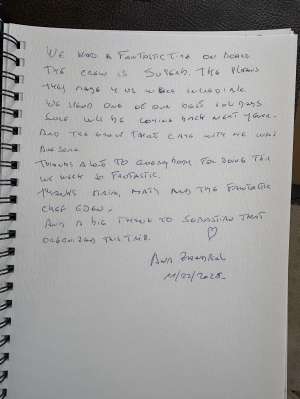 WE HAD A FANTASTIC TIME ON BOARD
THE CREW IS SUPERB. THE PLACES
THEY MADE 4 US WERE INCREDIBLE
WE SPEND ONE OF OUR BEST HOLIDAYS
SURE WILL BE COMING BACK NEXT YEAR.
AND THE CREW THAT CAME WITH ME WAS
AWESOME.
THANKS A LOT TO EVERYBODY FOR DOING THIS
WEEK SO FANTASTIC.
THANKS MATY AND THE FANTASTIC
CHEF EDEN,
AND A BIG THANK TO SEBASTIAN THAT
ORGANIZED THIS TRIP.
ANA